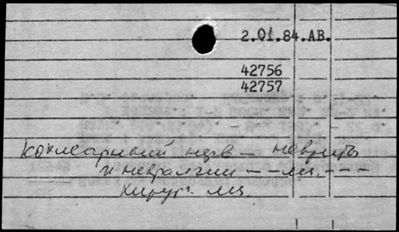 2.01.84.АВ.
42756
42757
Кохлеарный нерв — невриты
и невралгии — — — — —
хирург.